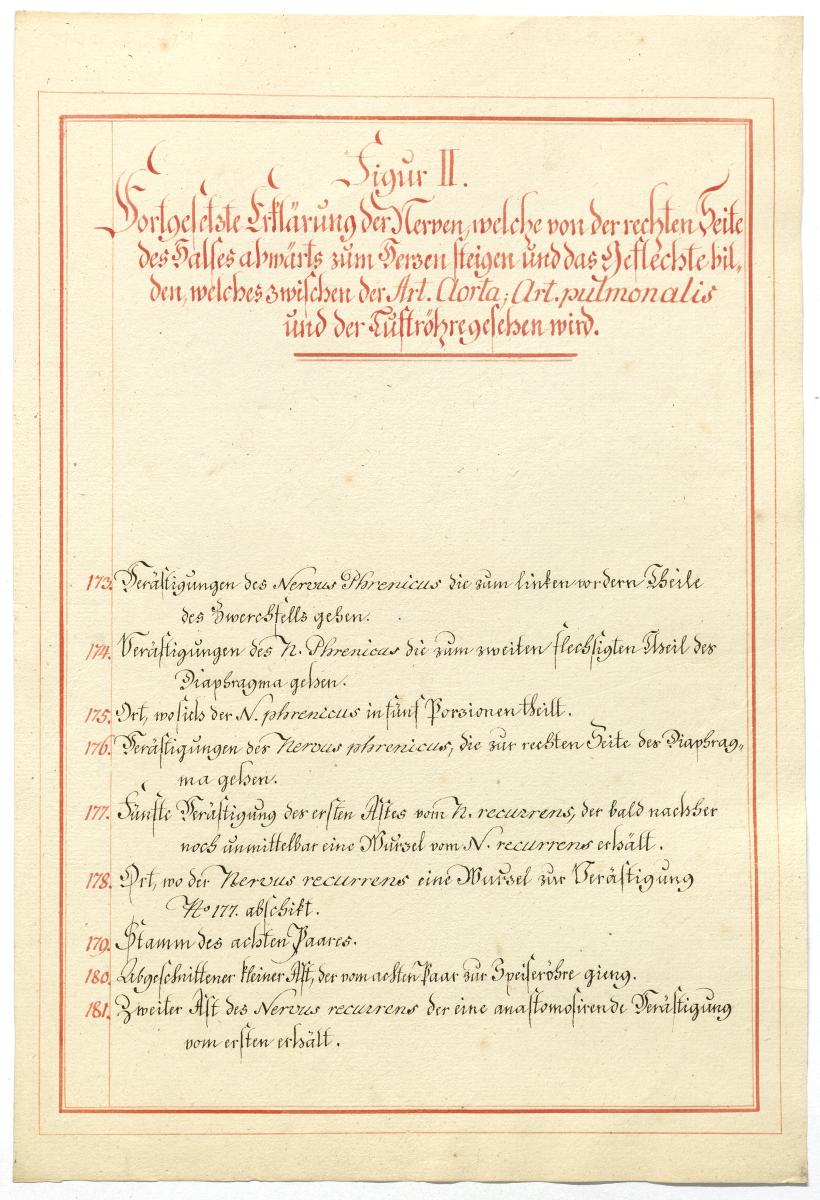 Figur II.
Fortgesetzte Erklärung der Nerven, welche von der rechten Seite
des Halses abwärts zum Herzen steigen und das Geflechte bil-
den, welches zwischen der Art. Aorta, Art. pulmonalis
und der Luftröhre gesehen wird.
173. Verästigungen des Nervus Phrenicus die zum linken vordern Theile
des Zwerchfells gehen.
174. Verästigungen des N. Phrenicus die zum zweiten flechsigten Theil des
Diaphragma gehen.
175. Ort, wo sich der N. phrenicus in fünf Porzionen theilt.
176. Verästigungen des Nervus phrenicus, die zur rechten Seite des Diaphrag-
ma gehen.
177. Fünfte Verästigung des ersten Astes vom N. recurrens, der bald nachher
noch unmittelbar eine Wurzel vom N. recurrens erhält.
178. Ort, wo der Nervus recurrens eine Wurzel zur Verästigung
No 177. abschikt.
179. Stamm des achten Paares.
180. Abgeschnittener kleiner Ast, der vom achten Paar zur Speiseröhre gieng.
181. Zweiter Ast des Nervus recurrens der eine anastomosirende Verästigung
vom ersten erhält.